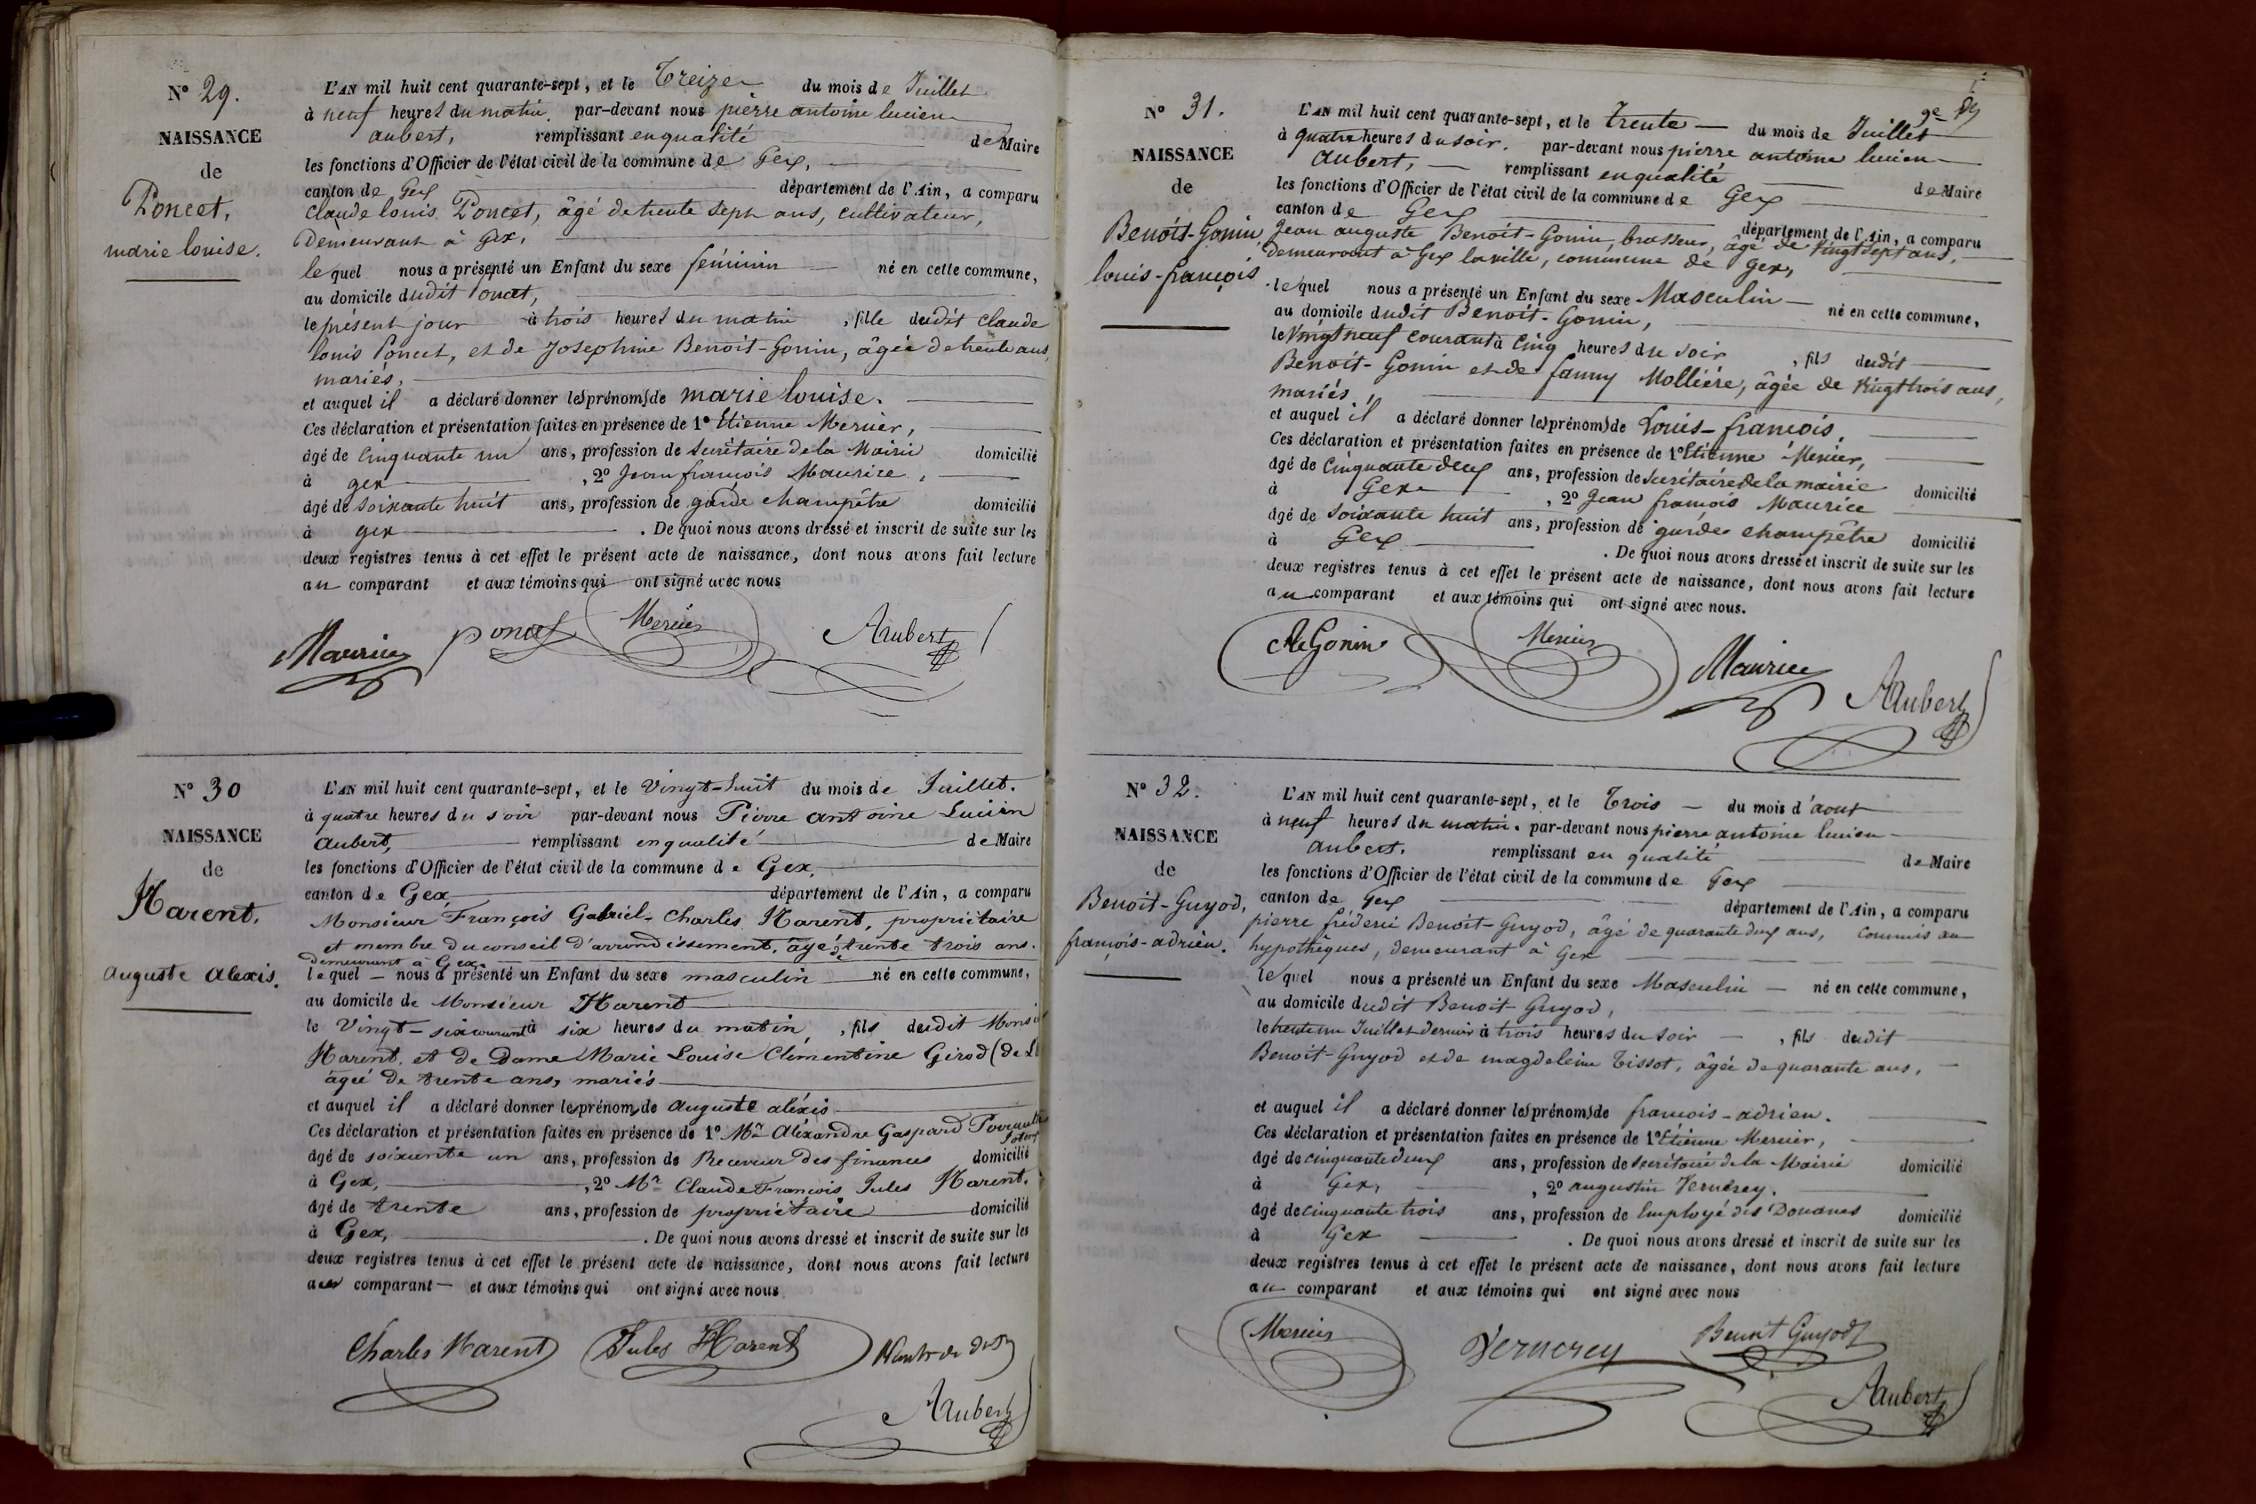 N° 29.
NAISSANCE
de
Poncet,
marie louise.
L'AN mil huit cent quarante-sept, et le Treize du mois de Juillet
à neuf heures du matin. par-devant nous pierre antoine lucien
aubert, remplissant en qualité de Maire
les fonctions d'Officier de l'état civil de la commune de Gex,
canton de Gex département de l'Ain, a comparu
Claude louis Poncet, âgé de trente sept ans, cultivateur,
Demeurant à Gex,
lequel nous a présenté un Enfant du sexe féminin né en cette commune,
au domicile dudit Poncet,
le présent jour à trois heures du matin, fille dudit Claude
louis Poncet, et de Josephine Benoit-Gonin, âgée de trente ans,
mariés,
et auquel il a déclaré donner le(s) prénom(s) de marie louise.
Ces déclaration et présentation faites en présence de 1° Etienne Mercier,
âgé de Cinquante un ans, profession de Secrétaire de la Mairie domicilié
à gex, 2° Jean françois Maurice,
âgé de soixante huit ans, profession de garde champêtre domicilié
à gex. De quoi nous avons dressé et inscrit de suite sur les
deux registres tenus à cet effet le présent acte de naissance, dont nous avons fait lecture
au comparant et aux témoins qui ont signé avec nous
Maurice poncet Mercier AAubert
N° 30
NAISSANCE
de
Harent.
auguste alexis.
L'AN mil huit cent quarante-sept, et le vingt-huit du mois de Juillet.
à quatre heures du soir par-devant nous Pierre antoine Lucien
aubert, remplissant en qualité de Maire
les fonctions d'Officier de l'état civil de la commune de Gex,
canton de Gex département de l'Ain, a comparu
Monsieur François Gabriel-Charles Harent, propriétaire
et membre du conseil d'arrondissement, âgé de trente trois ans.
demeurant à Gex
lequel nous a présenté un Enfant du sexe masculin né en cette commune,
au domicile de Monsieur Harent
le Vingt-six courant à six heures du matin, fils dudit Monsi
Harent et de Dame Marie Louise Clémentine Girod (de L
âgée de trente ans, mariés
et auquel il a déclaré donner le(s) prénom(s) de auguste aléxis
Ces déclaration et présentation faites en présence de 1° Mr Aléxandre Gaspard
âgé de soixante un ans, profession de Receveur des finances domicilié
à Gex, 2° Mr Claude François Jules Harent.
âgé de trente ans, profession de propriétaire domicilié
à Gex,. De quoi nous avons dressé et inscrit de suite sur les
deux registres tenus à cet effet le présent acte de naissance, dont nous avons fait lecture
au comparant et aux témoins qui ont signé avec nous
Charles Harent Jules Harent
AAubert
N° 31.
NAISSANCE
de
Benoît-Gonin
louis-françois
L'AN mil huit cent quarante-sept, et le trente du mois de Juillet
à quatre heures du soir. par-devant nous pierre antoine lucien
aubert, remplissant en qualité de Maire
les fonctions d'Officier de l'état civil de la commune de Gex
canton de Gex département de l'Ain, a comparu
Jean auguste Benoit-Gonin, brasseur, âgé de vingt sept ans,
demeurant à Gex la ville, commune de Gex,
lequel nous a présenté un Enfant du sexe Masculin né en cette commune,
au domicile dudit Benoit-Gonin,
le Vingt neuf courant à Cinq heures du soir, fils dudit
Benoit-Gonin et de fanny Mollière, âgée de vingt trois ans,
mariés,
et auquel il a déclaré donner le(s) prénom(s) de Louis-françois,
Ces déclaration et présentation faites en présence de 1° Etienne Mercier,
âgé de Cinquante deux ans, profession de Secrétaire de la mairie domicilié
à Gex, 2° Jean françois Maurice
âgé de soixante huit ans, profession de garde champêtre domicilié
à Gex. De quoi nous avons dressé et inscrit de suite sur les
deux registres tenus à cet effet le présent acte de naissance, dont nous avons fait lecture
au comparant et aux témoins qui ont signé avec nous.
Gonin Mercier Maurice AAubert
N° 32.
NAISSANCE
de
Benoit-Guyod,
françois-adrien.
L'AN mil huit cent quarante-sept, et le Trois du mois d'aout
à neuf heures du matin. par-devant nous pierre antoine lucien
aubert. remplissant en qualité de Maire
les fonctions d'Officier de l'état civil de la commune de Gex
canton de Gex département de l'Ain, a comparu
pierre fréderic Benoit-Guyod, âgé de quarante deux ans, Commis au
hypothèques, demeurant à Gex
lequel nous a présenté un Enfant du sexe Masculin né en cette commune,
au domicile dudit Benoit-Guyod,
le trente un Juillet dernier à trois heures du soir, fils dudit
Benoit-Guyod et de magdeleine Tissot, âgée de quarante ans,
et auquel il a déclaré donner le(s) prénom(s) de francois-adrien.
Ces déclaration et présentation faites en présence de 1° Etienne Mercier,
âgé de cinquante deux ans, profession de Secrétaire de la Mairie domicilié
à Gex, 2° augustin Vernerey.
âgé de cinquante trois ans, profession de Employé des Douanes domicilié
à Gex. De quoi nous avons dressé et inscrit de suite sur les
deux registres tenus à cet effet le présent acte de naissance, dont nous avons fait lecture
au comparant et aux témoins qui ont signé avec nous
Mercier Vernerey Benoit Guyod
AAubert